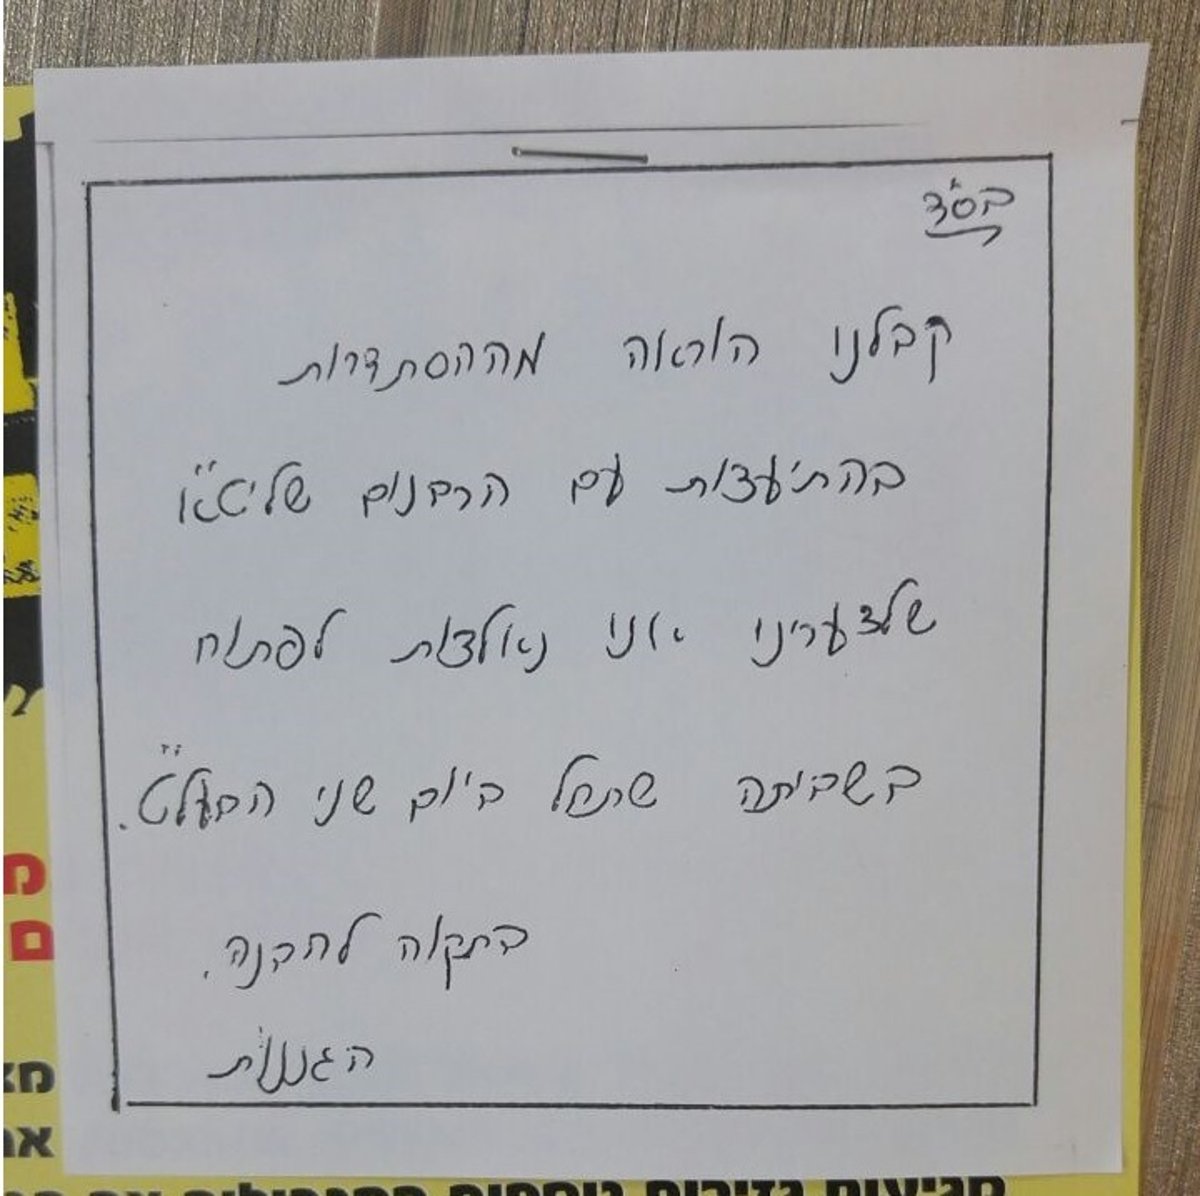 בס"ד
קבלנו הוראה מההסתדרות
בהתיעצות עם הרבנים שליט"א
שלצערינו אנו נאלצות לפתוח
בשביתה שתחל ביום שני הבעל"ט.
בתקוה להבנה.
הגננות